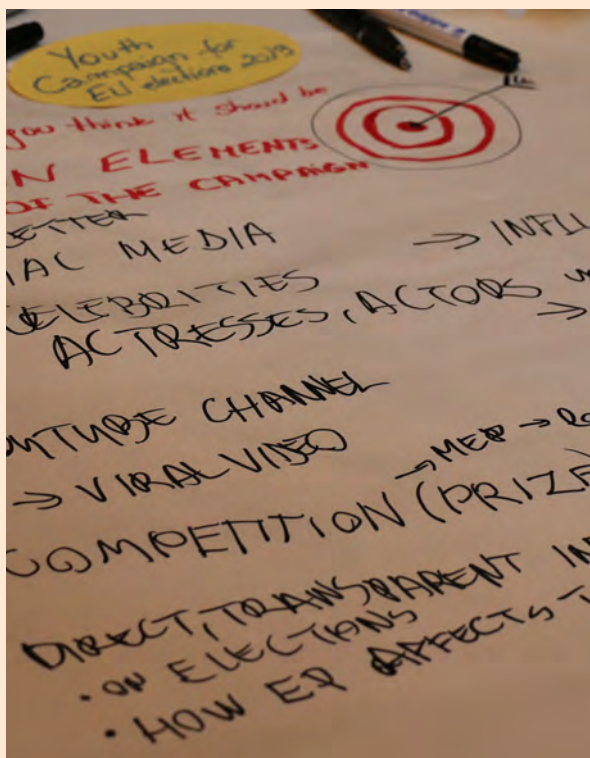 Youth
Campaign for
EU elections 2019
you think it should be
ELEMENTS
OF THE CAMPAIGN
ETTER
IAL MEDIA → INFLU
CELEBRITIES
ACTRESSES, ACTORS
→
OUTUBE CHANNEL
→ VIRAL VIDEO
→ MEP →
COMPETITION (PRIZE
DIRECT, TRANSPARENT IN
• ON ELECTIONS
• HOW EP AFFECTS